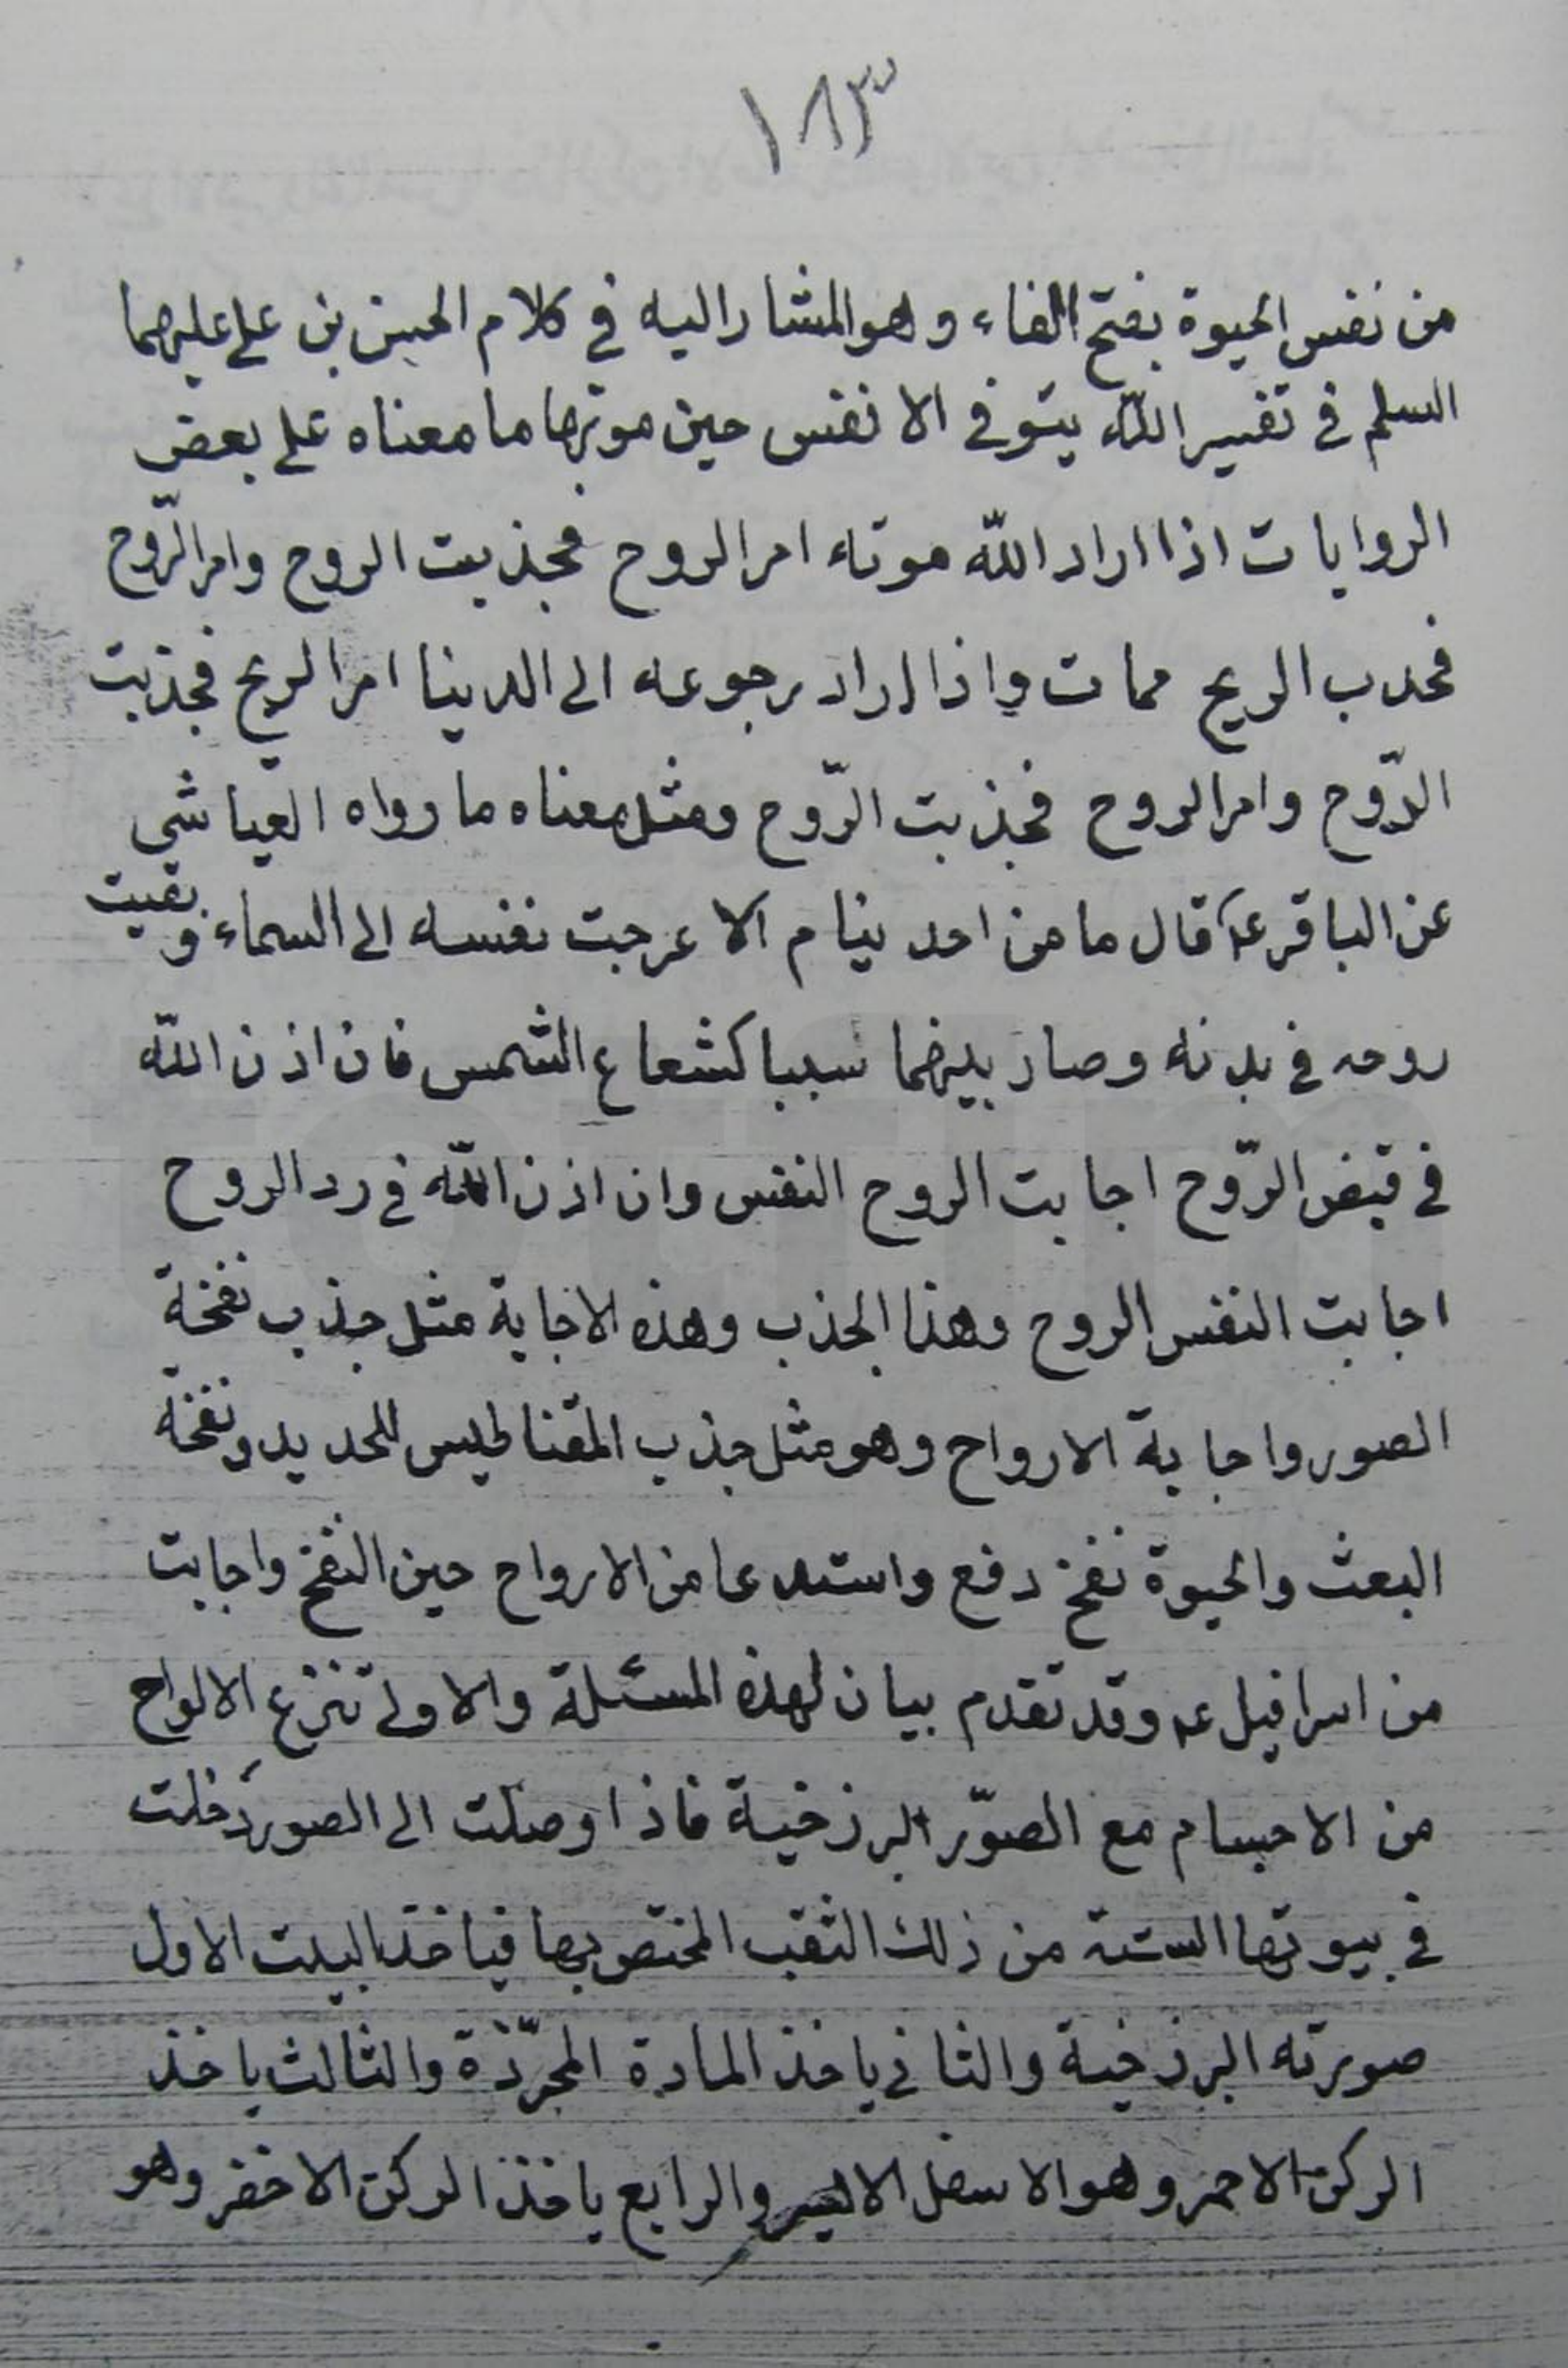 ١٨٣
من نفس الحيوة بفتح الفاء وهو المشار اليه في كلام الحسن بن علي عليهما
السلم في تفسير الله يتوفى الانفس حين موتها ما معناه على بعض
الروايات اذا اراد الله موته امر الروح فجذبت الروح وامر الرّوح
فجذب الريح فمات واذا اراد رجوعه الى الدينا امر الريح فجذبت
الرّوح وامر الروح فجذبت الرّوح ومثل معناه ما رواه العياشي
عن الباقر عه قال ما من احد ينام الا عرجت نفسه الى السماء وبقيت
روحه في بدنه وصار بينهما سببا كشعاع الشمس فان اذن الله
في قبض الرّوح اجابت الروح النفس وان اذن الله في رد الروح
اجابت النفس الروح وهذا الجذب وهذه الاجابة مثل جذب نفخة
الصور واجابة الارواح وهو مثل جذب المقناطيس للحديد ونفخة
البعث والحيوة نفخ دفع واستدعا من الارواح حين النفخ واجابت
من اسرافيل عه وقد تقدم بيان لهذه المسئلة والاولى تنزع الالواح
من الاجسام مع الصوّر البرزخية فاذا وصلت الى الصور دخلت
في بيوتها الستة من ذلك الثقب المختص بها فياخذ البيت الاول
صورته البرزخية والثاني ياخذ المادة المجرّدة والثالث ياخذ
الركن الاحمر وهو الاسفل الايسر والرابع ياخذ الركن الاخضر وهو